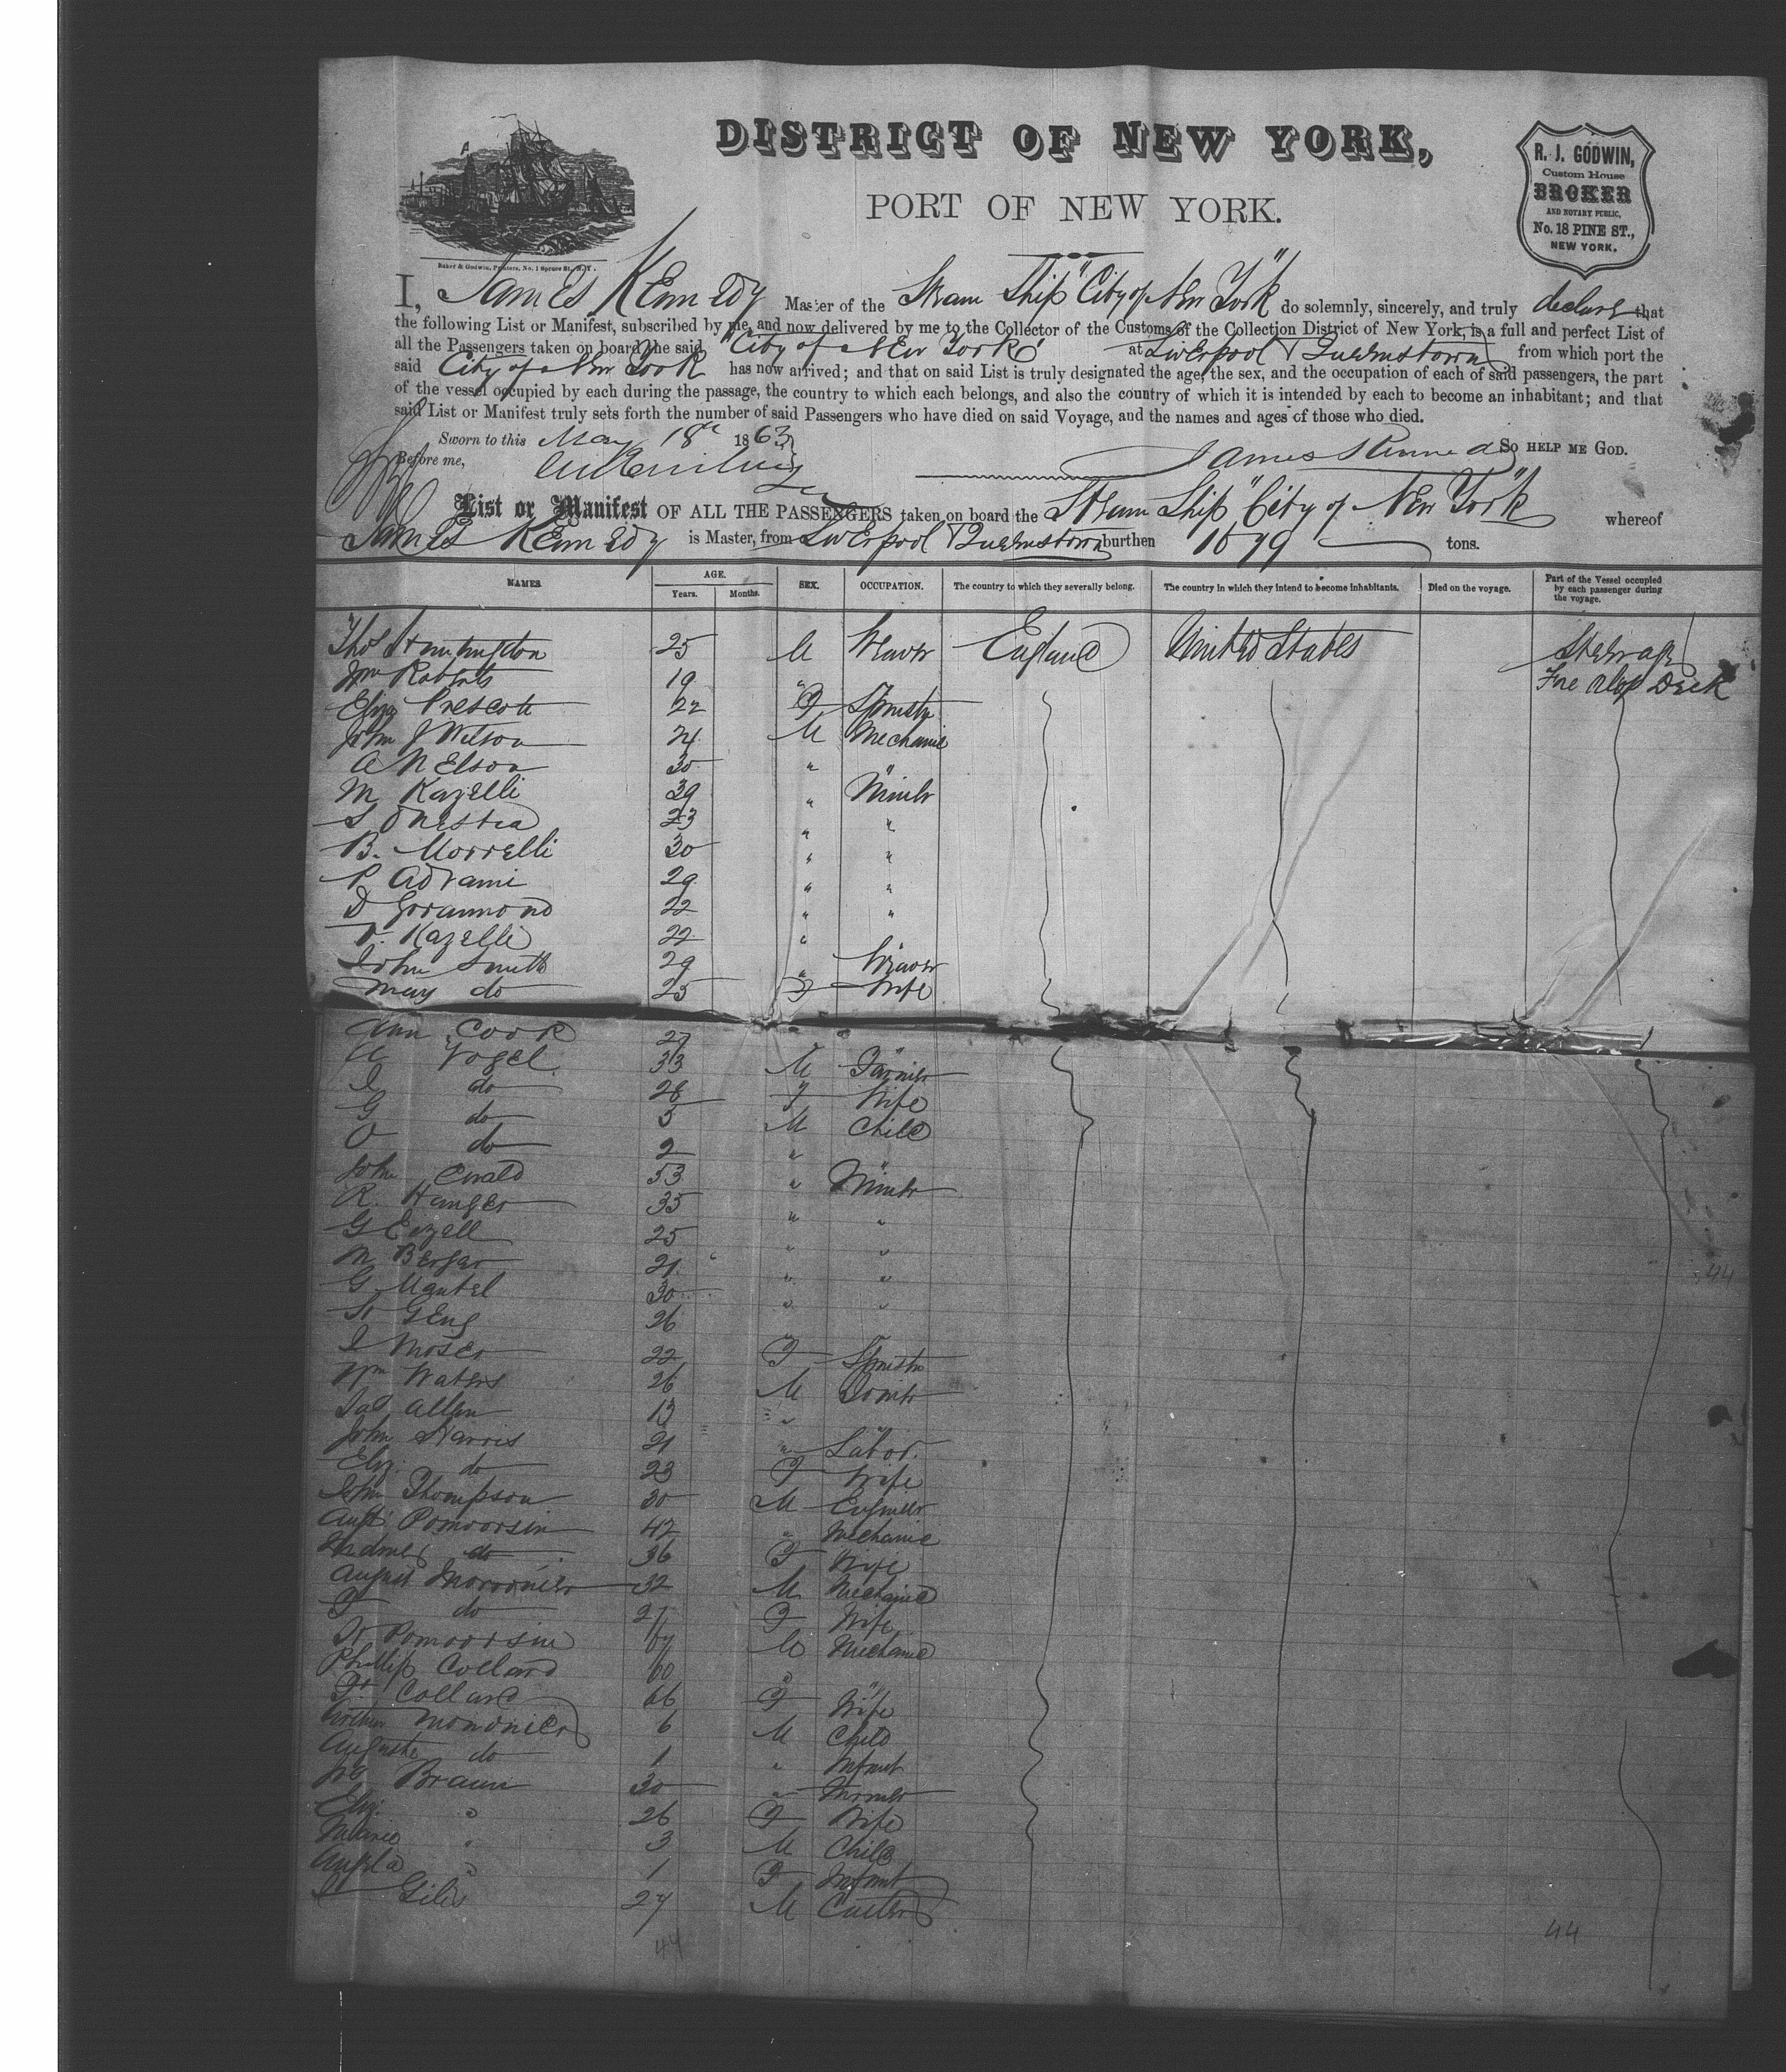 DISTRICT OF NEW YORK,
PORT OF NEW YORK.
R. J. GODWIN,
Custom House
BROKER
AND NOTARY PUBLIC,
No. 18 PINE ST.,
NEW YORK.
Baker & Godwin, Printers, No. 1 Spruce St., N.Y.
I, James Kennedy Master of the Steam Ship "City of New York" do solemnly, sincerely, and truly declare that
the following List or Manifest, subscribed by me, and now delivered by me to the Collector of the Customs of the Collection District of New York, is a full and perfect List of
all the Passengers taken on board the said "City of New York" at Liverpool & Queenstown from which port the
said City of New York has now arrived; and that on said List is truly designated the age, the sex, and the occupation of each of said passengers, the part
of the vessel occupied by each during the passage, the country to which each belongs, and also the country of which it is intended by each to become an inhabitant; and that
said List or Manifest truly sets forth the number of said Passengers who have died on said Voyage, and the names and ages of those who died.
Sworn to this May 18th 1863
So HELP ME GOD.
Before me, James Kennedy
List or Manifest OF ALL THE PASSENGERS taken on board the Steam Ship "City of New York" whereof
James Kennedy is Master, from Liverpool & Queenstown burthen 1679 tons.
NAMES. AGE. Years. Months. SEX. OCCUPATION. The country to which they severally belong. The country in which they intend to become inhabitants. Died on the voyage. Part of the Vessel occupied by each passenger during the voyage.
Thos Huntington 25 M Weaver England United States Steerage
Wm Roberts 19 " Fore Alop Deck
Eliza Prescott 22 F Spinster
John J Wilson 24 M Mechanic
A Nelson 30 " "
M Kazelli 39 " Miner
S 23 " "
B. Morrelli 30 " "
P Adrami 29 " "
D 22 " "
Kazelli 22 "
John Smith 29 " Weaver
May do 25 F Wife
Ann Cook 27 " "
A Vogel 33 M Farmer
I do 28 F Wife
G do 5 M Child
O do 2 " "
John Ewald 53 " Miner
R. Hanger 35 " "
G Enzell 25 " "
M Berger 21 " "
G Mantel 30 " "
Geng 26
I Moser 22 F Spinster
Wm Waters 26 M Joiner
Jas Allen 13 "
John Harris 21 " Labor.
Eliz. do 23 F Wife
John Thompson 30 M Engineer
Aug. Pomoorsin 42 " Mechanic
do 36 F Wife
August 32 M Mechanic
F do 27 F Wife
Pomoorsin M Mechanic
Phillip Collard 60 " "
Collard 66 F Wife
6 M Child
Auguste do 1 " Infant
Braun 30 "
Eliz. " 26 F Wife
" 3 M Child
Angela " 1 F Infant
Giles 27 M Cutler
44
44
44